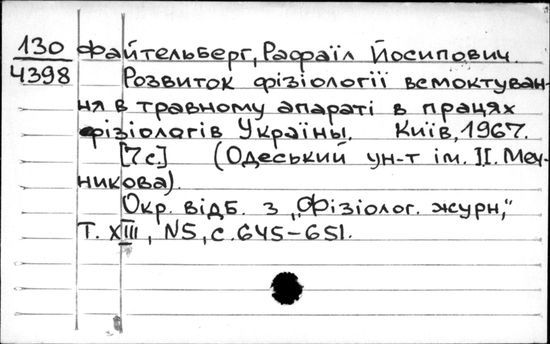 130 Файтельберг, Рафаїл Йосипович.
4398 Розвиток фізіології всмоктуван-
ня в травному апараті в працях
фізіологів Украіны. Київ, 1967.
[7с] (Одеський ун-т ім. І.І. Меч-
никова).
Окр. відб. з „Фізіолог. журн,"
Т. XIII, N5, с. 645-651.